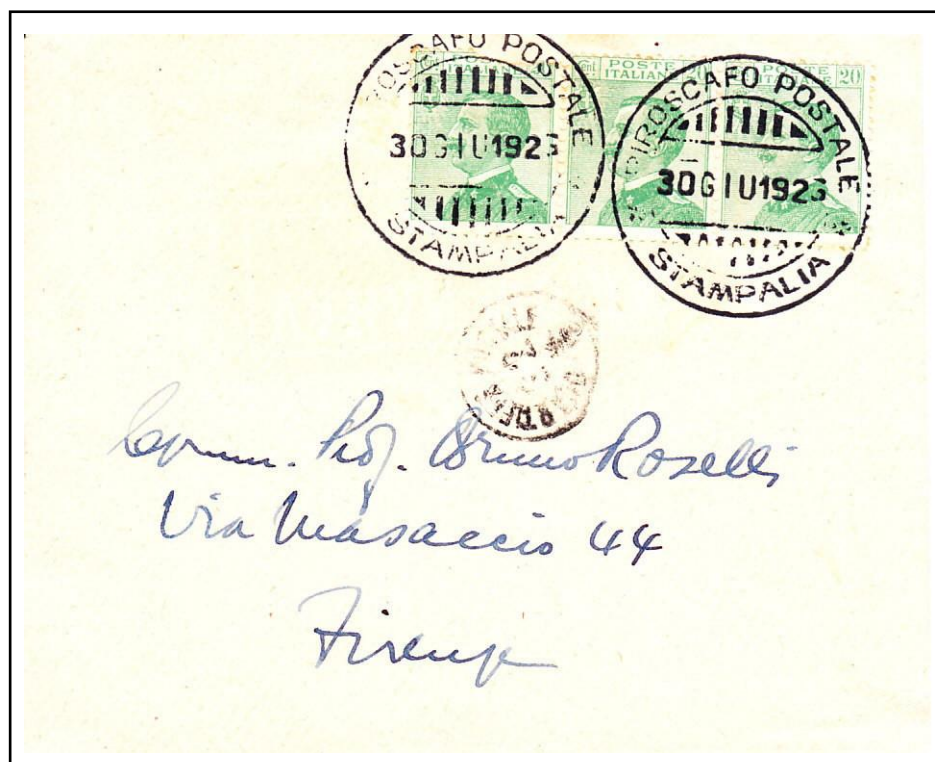 OSCAFO POSTALE
30GIU1926
STAMPALIA
POSTE
ITALIANE 20
20
PIROSCAFO POSTALE
30GIU1926
STAMPALIA
Comm. Prof. Bruno Roselli
Via Masaccio 44
Firenze